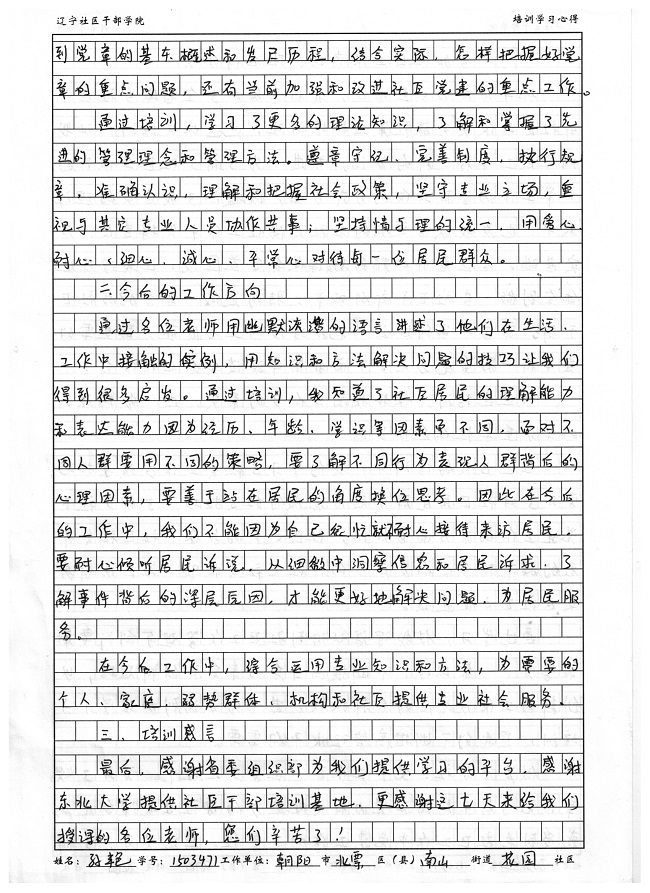 辽宁社区干部学院 培训学习心得
到党章的基本概述和发展历程，结合实际，怎样把握好党
章的重点问题，还有当前加强和改进社区党建的重点工作。
通过培训，学习了更多的理法知识，了解和掌握了先
进的管理理念和管理方法。遵章守纪、完善制度，执行规
章。准确认识，理解和把握社会政策，坚守专业立场，重
视与其它专业人员协作共事；坚持情与理的统一，用爱心、
耐心、细心、诚心、平常心对待每一位居民群众。
二、今后的工作方向
通过各位老师用幽默诙谐的语言讲述了他们在生活、
工作中接触的实例，用知识和方法解决问题的技巧让我们
得到很多启发。通过培训，我知道了社区居民的理解能力
和表达能力因为经历、年龄、学识等因素而不同，面对不
同人群要用不同的策略，要了解不同行为表现人群背后的
心理因素，要善于站在居民的角度换位思考。因此在今后
的工作中，我们不能因为自己繁忙就不耐心接待来访居民，
要耐心倾听居民诉说，从细微中洞察信息和居民诉求，了
解事件背后的深层原因，才能更好地解决问题，为居民服
务。
在今后工作中，综合运用专业知识和方法，为需要的
个人、家庭、弱势群体、机构和社区提供专业社会服务。
三、培训感言
最后，感谢省委组织部为我们提供学习的平台，感谢
东北大学提供社区干部培训基地，更感谢这七天来给我们
授课的各位老师，您们辛苦了！
姓名：孙艳 学号：1503471 工作单位：朝阳 市 北票 区（县）南山 街道 花园 社区